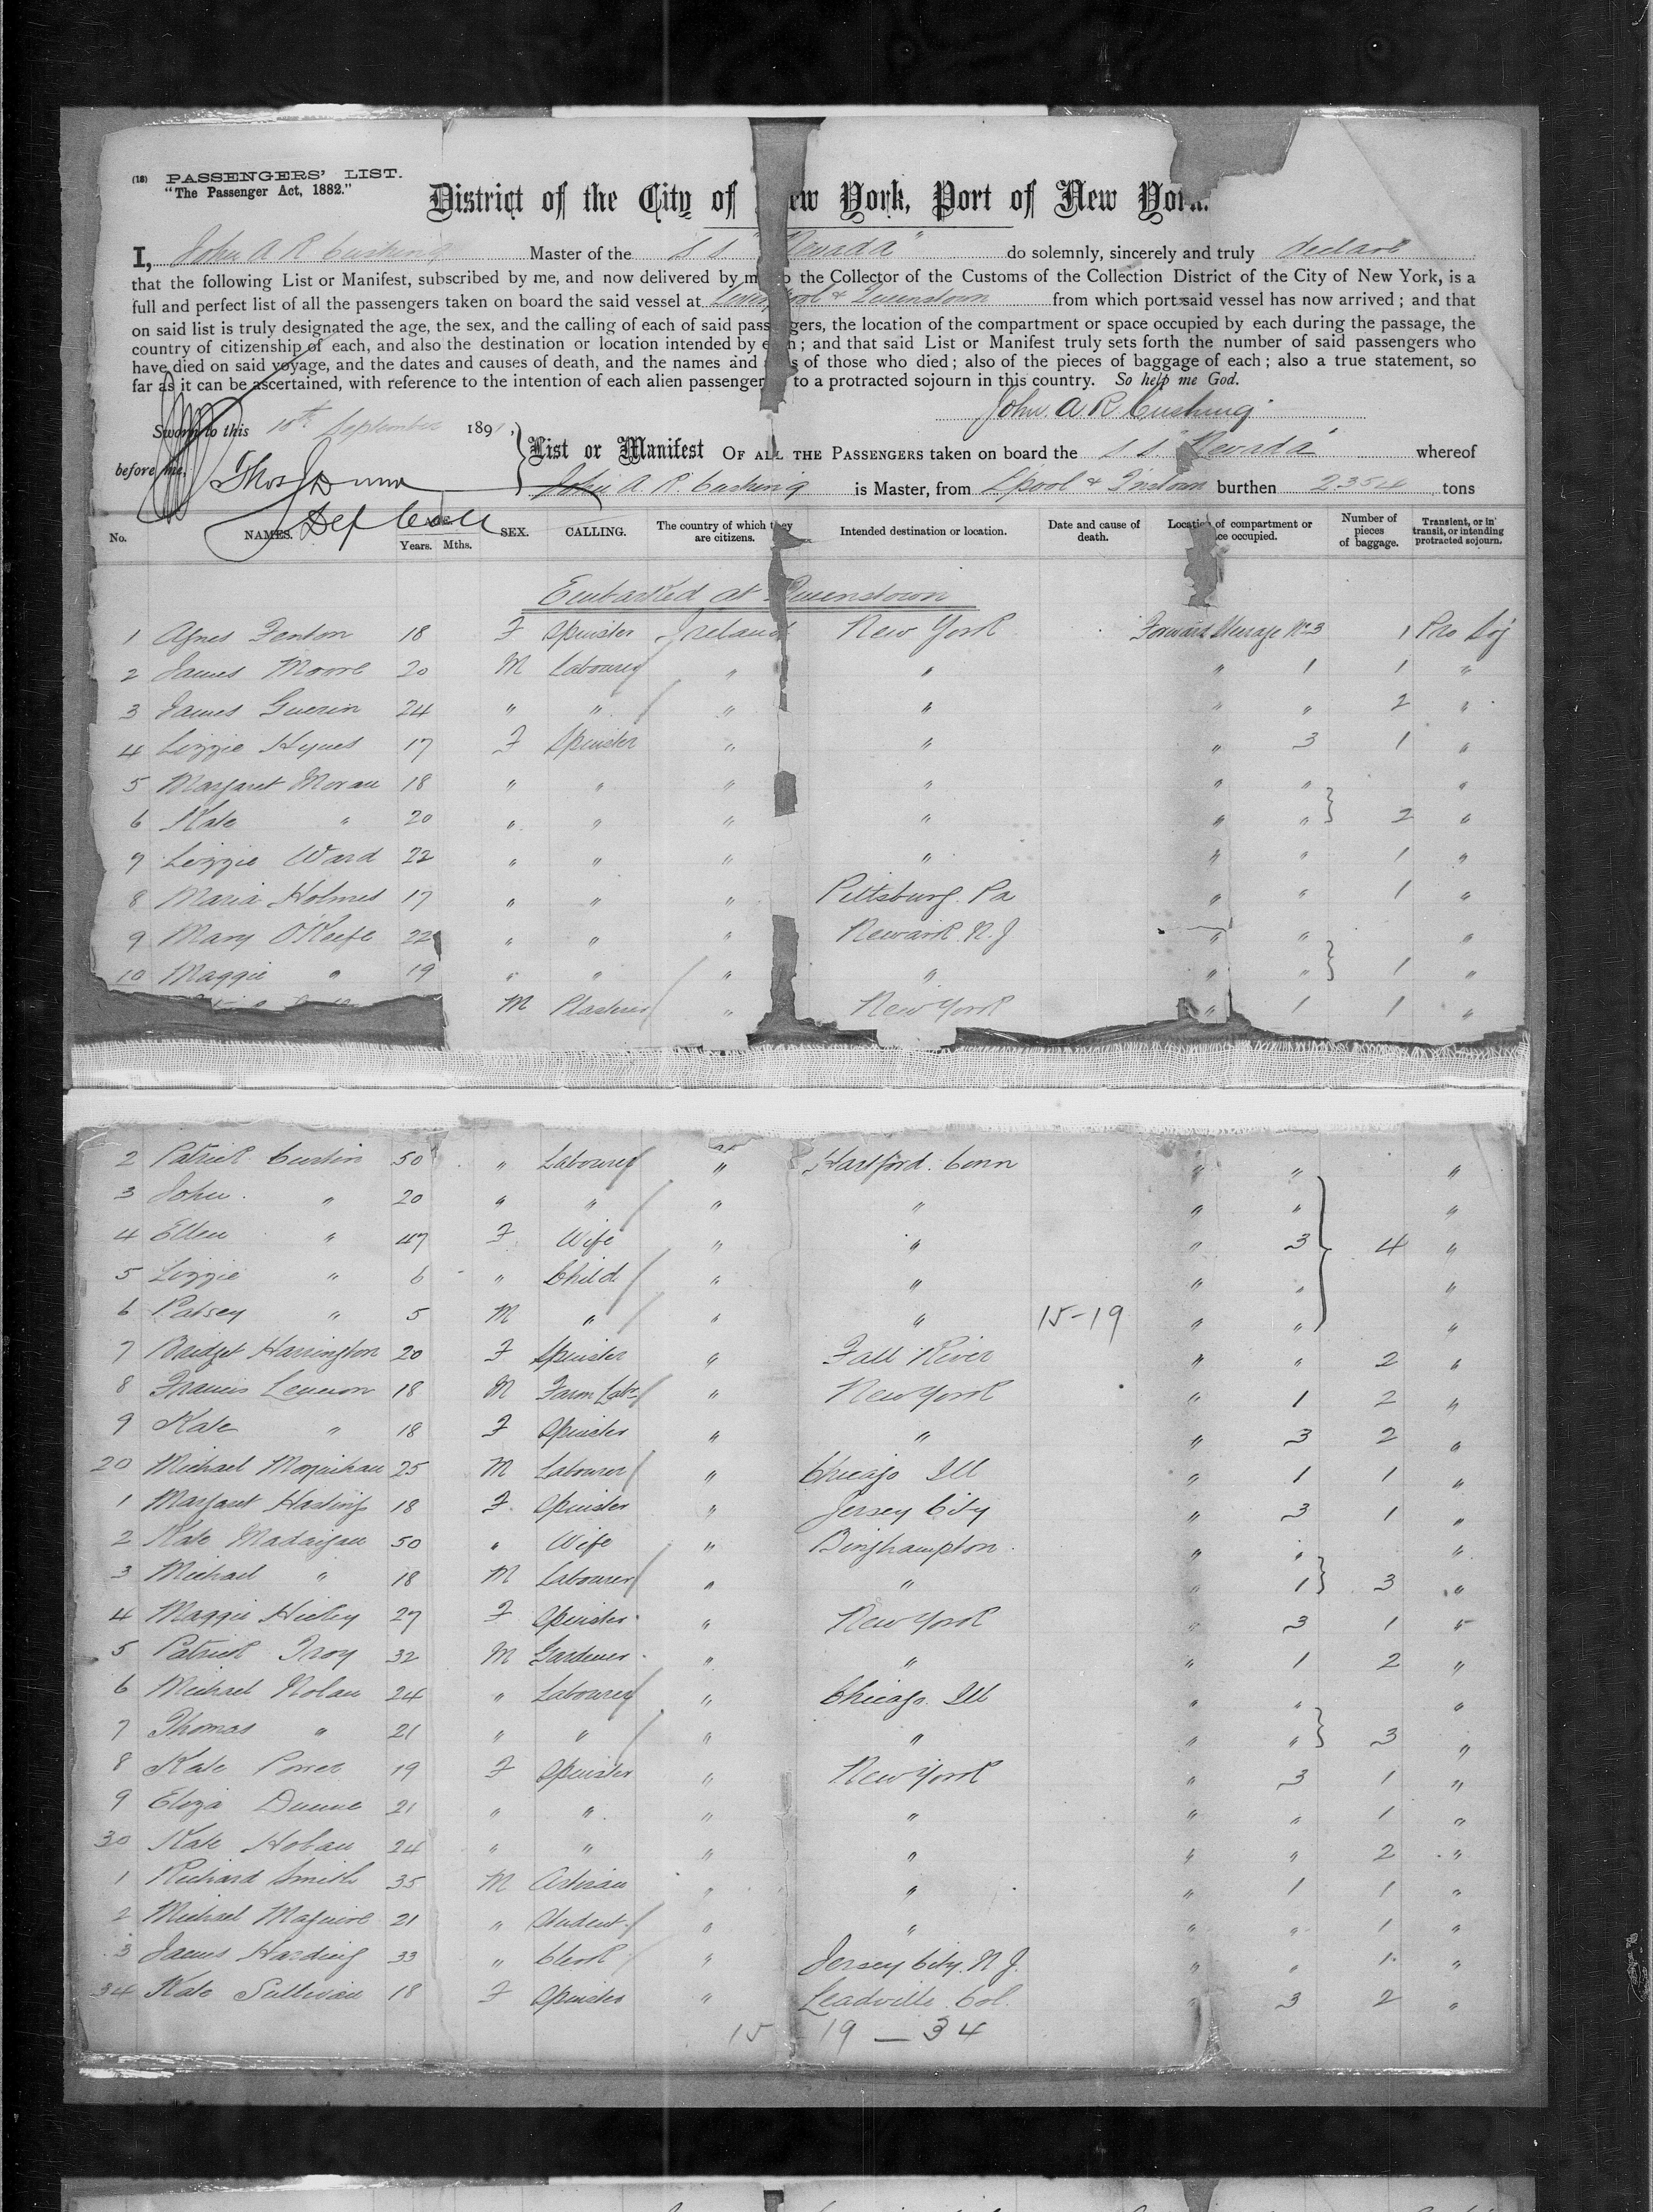 (18) PASSENGERS' LIST.
"The Passenger Act, 1882."
District of the City of New York, Port of New York.
I, John A R Cushing Master of the S S "Nevada" do solemnly, sincerely and truly declare
that the following List or Manifest, subscribed by me, and now delivered by me to the Collector of the Customs of the Collection District of the City of New York, is a
full and perfect list of all the passengers taken on board the said vessel at Liverpool & Queenstown from which ports said vessel has now arrived; and that
on said list is truly designated the age, the sex, and the calling of each of said passengers, the location of the compartment or space occupied by each during the passage, the
country of citizenship of each, and also the destination or location intended by each; and that said List or Manifest truly sets forth the number of said passengers who
have died on said voyage, and the dates and causes of death, and the names and ages of those who died; also of the pieces of baggage of each; also a true statement, so
far as it can be ascertained, with reference to the intention of each alien passenger to a protracted sojourn in this country. So help me God.
John. A. R. Cushing
Sworn to this 10th September 1891,
before me, Thos J Dunn
Dep Coll
List or Manifest OF ALL THE PASSENGERS taken on board the S. S. "Nevada" whereof
John A R. Cushing is Master, from L'pool & Q'nstown burthen 2354 tons
No. NAMES. Years. Mths. SEX. CALLING. The country of which they are citizens. Intended destination or location. Date and cause of death. Location of compartment or space occupied. Number of pieces of baggage. Transient, or in transit, or intending protracted sojourn.
Embarked at Queenstown
1 Agnes Fenton 18 F Spinster Ireland New York Forward Steerage No 3 1 Pro Soj
2 James Moore 20 M Labourer " " " 1 1 "
3 James Guerin 24 " " " " " " 2 "
4 Lizzie Hynes 17 F Spinster " " " 3 1 "
5 Margaret Moran 18 " " " " " " "
6 Kate " 20 " " " " " " 2 "
7 Lizzie Ward 22 " " " " " " 1 "
8 Maria Holmes 17 " " " Pittsburg. Pa " " 1 "
9 Mary O'Keefe 22 " " " Newark. N. J " " "
10 Maggie " 19 " " " " " " 1 "
M Plasterer " New York " 1 1 "
2 Patrick Curtin 50 " Labourer " Hartford. Conn " " "
3 John. " 20 " " " " " " "
4 Ellen " 47 F Wife " " " 3 4 "
5 Lizzie " 6 " Child " " " " "
6 Patsey " 5 M " " " 15-19 " " "
7 Bridget Harrington 20 F Spinster " Fall River " " 2 "
8 Francis Lennon 18 M Farm Labr " New York " 1 2 "
9 Kate " 18 F Spinster " " " 3 2 "
20 Michael Moynihan 25 M Labourer " Chicago Ill " 1 1 "
1 Margaret Hastings 18 F. Spinster " Jersey City " 3 1 "
2 Kate Madaigan 50 " Wife " Binghampton. " " "
3 Michael " 18 M Labourer " " " 1 3 "
4 Maggie 27 F Spinster " New York " 3 1 "
5 Patrick Troy 32 M Gardener " " " 1 2 "
6 Michael Nolan 24 " Labourer " Chicago. Ill " " "
7 Thomas " 21 " " " " " " 3 "
8 Kate Power 19 F Spinster " New York " 3 1 "
9 Eliza Dunne 21 " " " " " " 1 "
30 Kate Hoban 24 " " " " " " 2 "
1 Richard Smith 35 M Artisan " " " 1 1 "
2 Michael Maguire 21 " Student " " " " 1 "
3 James Harding 33 " Clerk " Jersey City. N. J. " " 1 "
34 Kate Sullivan 18 F Spinster " Leadville. Col. " 3 2 "
15 - 19 — 34